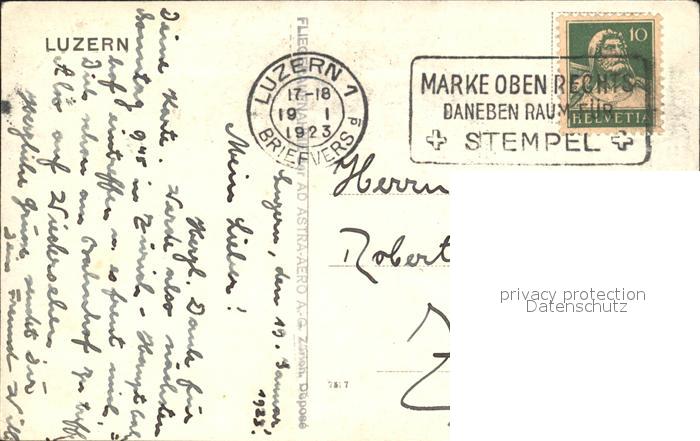 LUZERN
LUZERN 1
17-18
19 I
1923
BRIEFVERS.
MARKE OBEN RECHTS
DANEBEN RAUM FÜR
STEMPEL
10
HELVETIA
AD ASTRA-AERO A.-G. Zürich. Déposé
Luzern, den 19. Januar,
1923.
Mein Lieber!
Herzl. Dank für
Deine Karte. Werde also nächsten
Sonntag 9.45 in Zürich-Hauptbahn
hof eintreffen u. es freut mich,
Dich schon am Bahnhof zu treff
Also auf Wiedersehen
Herzliche Grüsse sendet Dir
Dein Freund Willi
Herrn
Robert
7817
privacy protection
Datenschutz